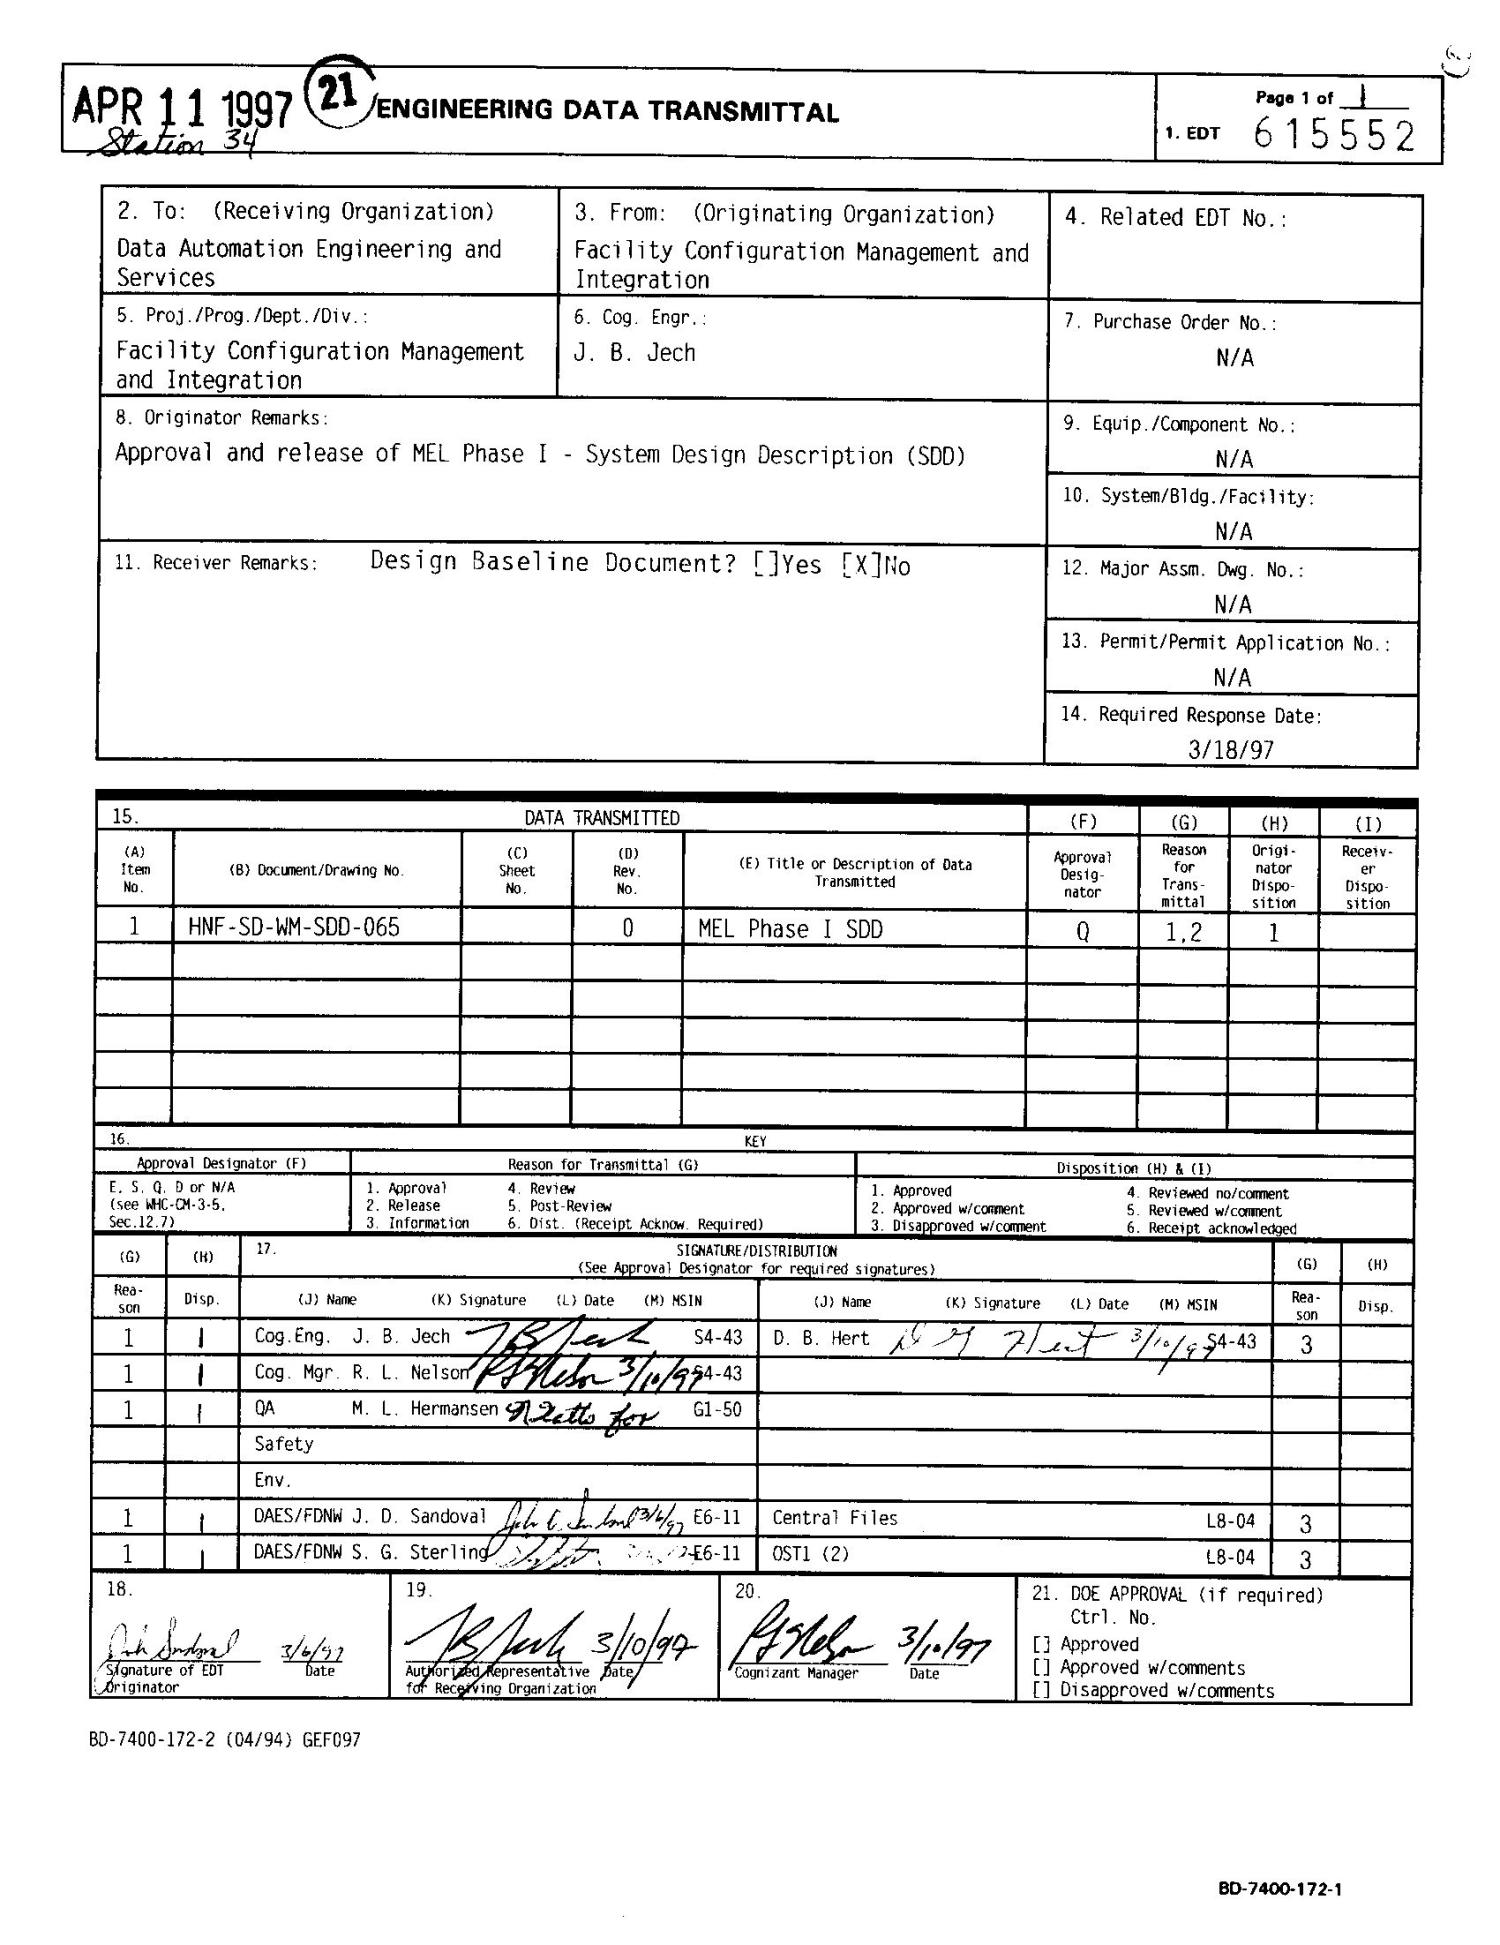 APR 11 1997
21
Station 34
ENGINEERING DATA TRANSMITTAL
Page 1 of 1
1. EDT 615552
2. To: (Receiving Organization)
Data Automation Engineering and
Services
3. From: (Originating Organization)
Facility Configuration Management and
Integration
4. Related EDT No.:
5. Proj./Prog./Dept./Div.:
Facility Configuration Management
and Integration
6. Cog. Engr.:
J. B. Jech
7. Purchase Order No.:
N/A
8. Originator Remarks:
Approval and release of MEL Phase I - System Design Description (SDD)
9. Equip./Component No.:
N/A
10. System/Bldg./Facility:
N/A
11. Receiver Remarks: Design Baseline Document? []Yes [X]No
12. Major Assm. Dwg. No.:
N/A
13. Permit/Permit Application No.:
N/A
14. Required Response Date:
3/18/97
15. DATA TRANSMITTED (F) (G) (H) (I)
(A)
Item
No.
(B) Document/Drawing No.
(C)
Sheet
No.
(D)
Rev.
No.
(E) Title or Description of Data
Transmitted
Approval
Desig-
nator
Reason
for
Trans-
mittal
Origi-
nator
Dispo-
sition
Receiv-
er
Dispo-
sition
1 HNF-SD-WM-SDD-065 0 MEL Phase I SDD Q 1,2 1
16. KEY
Approval Designator (F) Reason for Transmittal (G) Disposition (H) & (I)
E, S, Q, D or N/A
(see WHC-CM-3-5,
Sec.12.7)
1. Approval 4. Review
2. Release 5. Post-Review
3. Information 6. Dist. (Receipt Acknow. Required)
1. Approved 4. Reviewed no/comment
2. Approved w/comment 5. Reviewed w/comment
3. Disapproved w/comment 6. Receipt acknowledged
(G) (H) 17. SIGNATURE/DISTRIBUTION (G) (H)
(See Approval Designator for required signatures)
Rea-
son
Disp. (J) Name (K) Signature (L) Date (M) MSIN (J) Name (K) Signature (L) Date (M) MSIN
Rea-
son
Disp.
1 1 Cog.Eng. J. B. Jech JB Jech S4-43 D. B. Hert Hert 3/10/97 S4-43 3
1 1 Cog. Mgr. R. L. Nelson RL Nelson 3/10/97 S4-43
1 1 QA M. L. Hermansen for G1-50
Safety
Env.
1 1 DAES/FDNW J. D. Sandoval 3/6/97 E6-11 Central Files L8-04 3
1 1 DAES/FDNW S. G. Sterling E6-11 OSTI (2) L8-04 3
18.
Sandoval 3/6/97
Signature of EDT Date
Originator
19.
JB Jech 3/10/97
Authorized Representative Date
for Receiving Organization
20.
RL Nelson 3/10/97
Cognizant Manager Date
21. DOE APPROVAL (if required)
Ctrl. No.
[] Approved
[] Approved w/comments
[] Disapproved w/comments
BD-7400-172-2 (04/94) GEF097
BD-7400-172-1